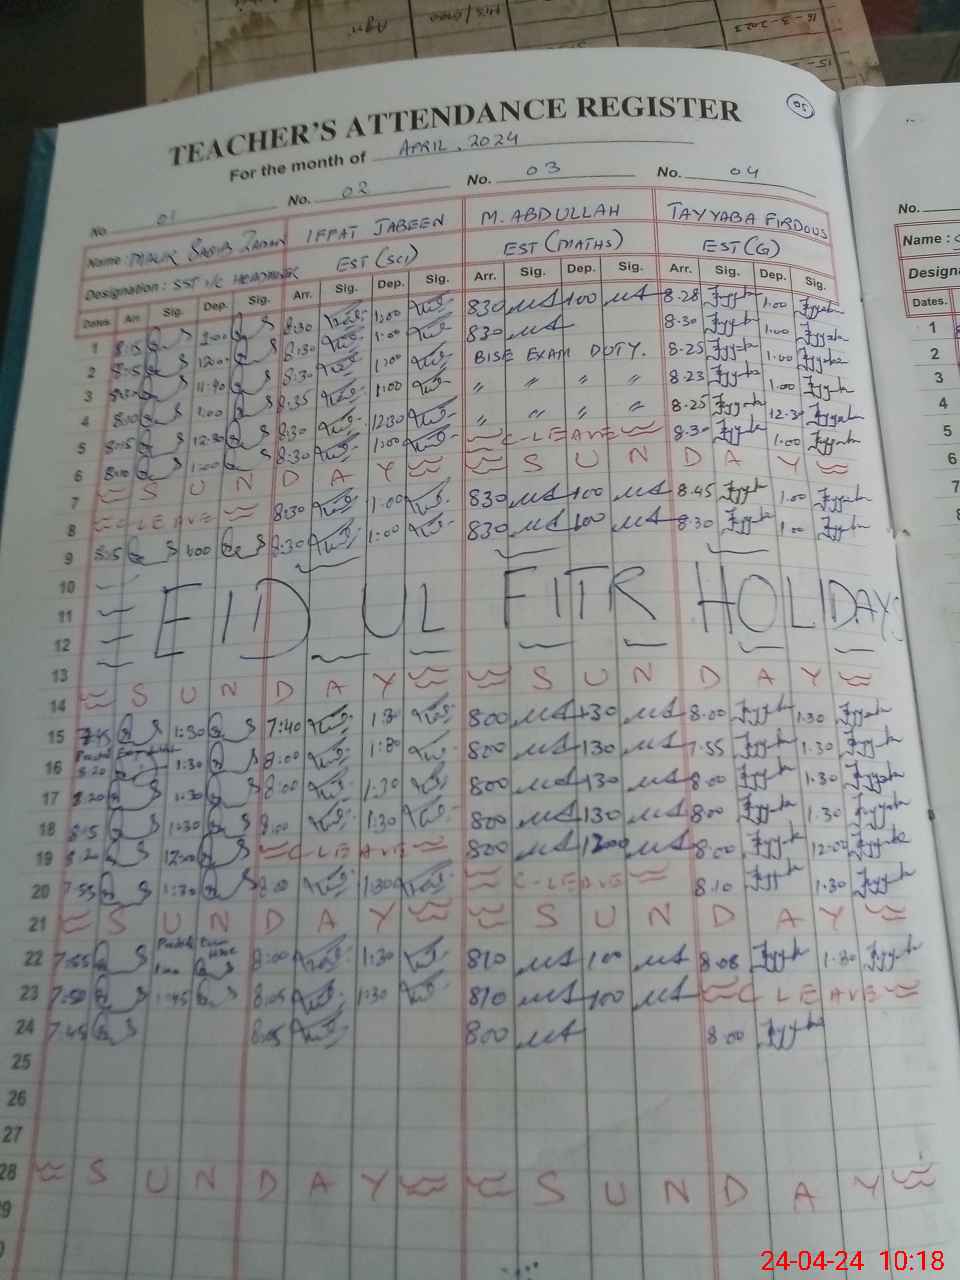 TEACHER'S ATTENDANCE REGISTER
05
For the month of APRIL, 2024
No. 01 No. 02 No. 03 No. 04 No.
Name : MALIK SABIR ZAMAN IFFAT JABEEN M. ABDULLAH TAYYABA FIRDOUS Name :
Designation : SST I/C HEADMASTER EST (SCI) EST (MATHS) EST (G)
Dates. Arr. Sig. Dep. Sig. Arr. Sig. Dep. Sig. Arr. Sig. Dep. Sig. Arr. Sig. Dep. Sig. Dates.
1 8:15 1:00 8:30 1:00 830 100 8.28 1.00 1
2 8:15 12:00 8:30 1:00 830 8.30 1.00 2
3 11:40 8:30 1:00 BISE EXAM DUTY. 8.25 1.00 3
4 8:10 1:00 8:35 1:00 " " " " 8.23 1.00 4
5 8:15 12:30 8:30 12:30 " " " " 8.25 12.30 5
6 8:10 1:00 8:30 1:00 C-LEAVE 8.30 1.00 6
7 S U N D A Y S U N D A Y 7
8 C LEAVE 8:30 1:00 830 100 8.45 1.00 8
9 8:15 1:00 8:30 1:00 830 100 8.30 1.00
10
11 EID UL FITR HOLIDAYS
12
13
14 S U N D A Y S U N D A Y
15 7:45 1:30 7:40 1:30 800 130 8.00 1.30
16 8:20 1:30 8:00 1:30 800 130 7.55 1.30
17 8:20 1:30 8:00 1:30 800 130 8.00 1.30
18 8:15 1:30 8:00 1:30 800 130 8.00 1.30
19 8:20 12:00 C LEAVE 800 1200 8.00 12.00
20 7:55 1:30 8:00 1:30 C-LEAVE 8.10 1.30
21 S U N D A Y S U N D A Y
22 7:55 1:00 8:00 1:30 810 100 8.08 1.30
23 7:50 1:45 8:05 1:30 810 100 C LEAVE
24 7:45 8:05 800 8.00
25
26
27
28 S U N D A Y S U N D A Y
24-04-24 10:18